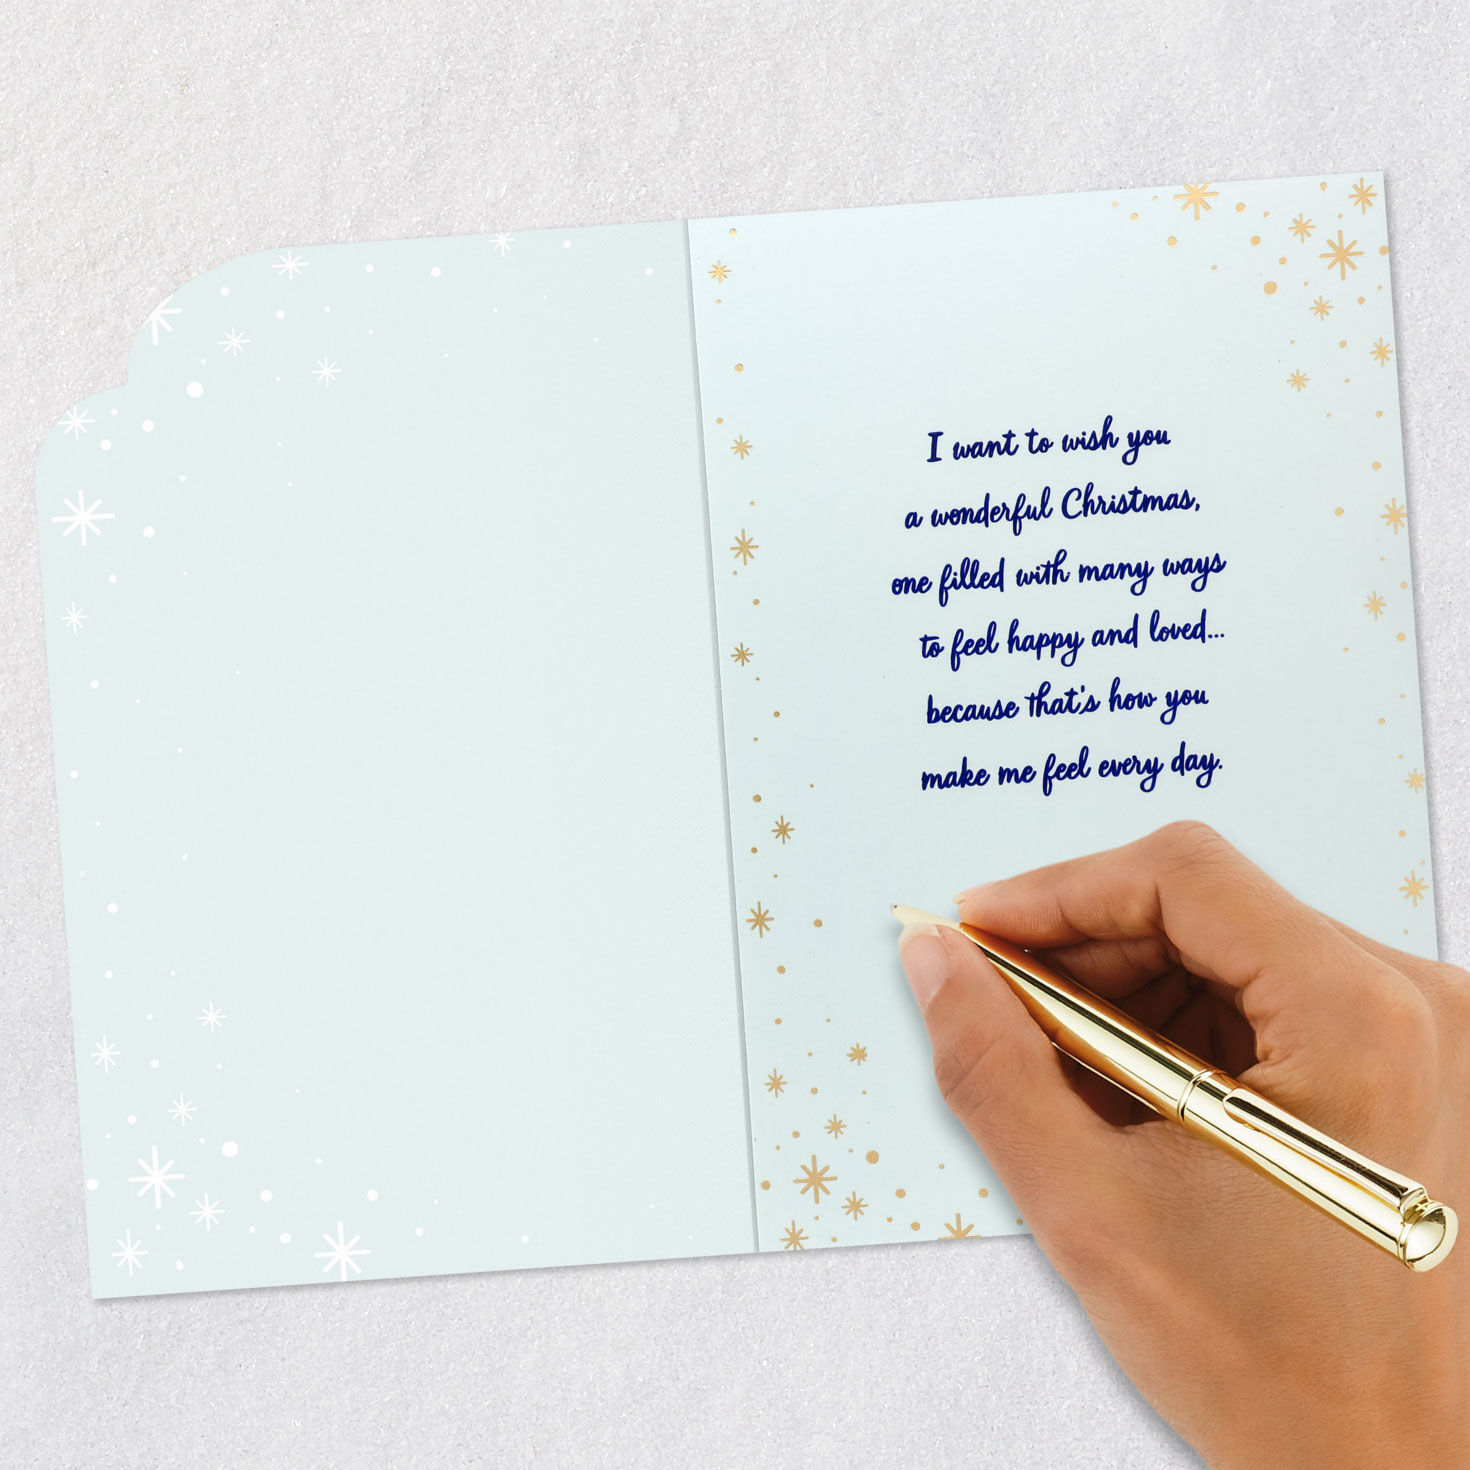 I want to wish you
a wonderful Christmas,
one filled with many ways
to feel happy and loved...
because that's how you
make me feel every day.